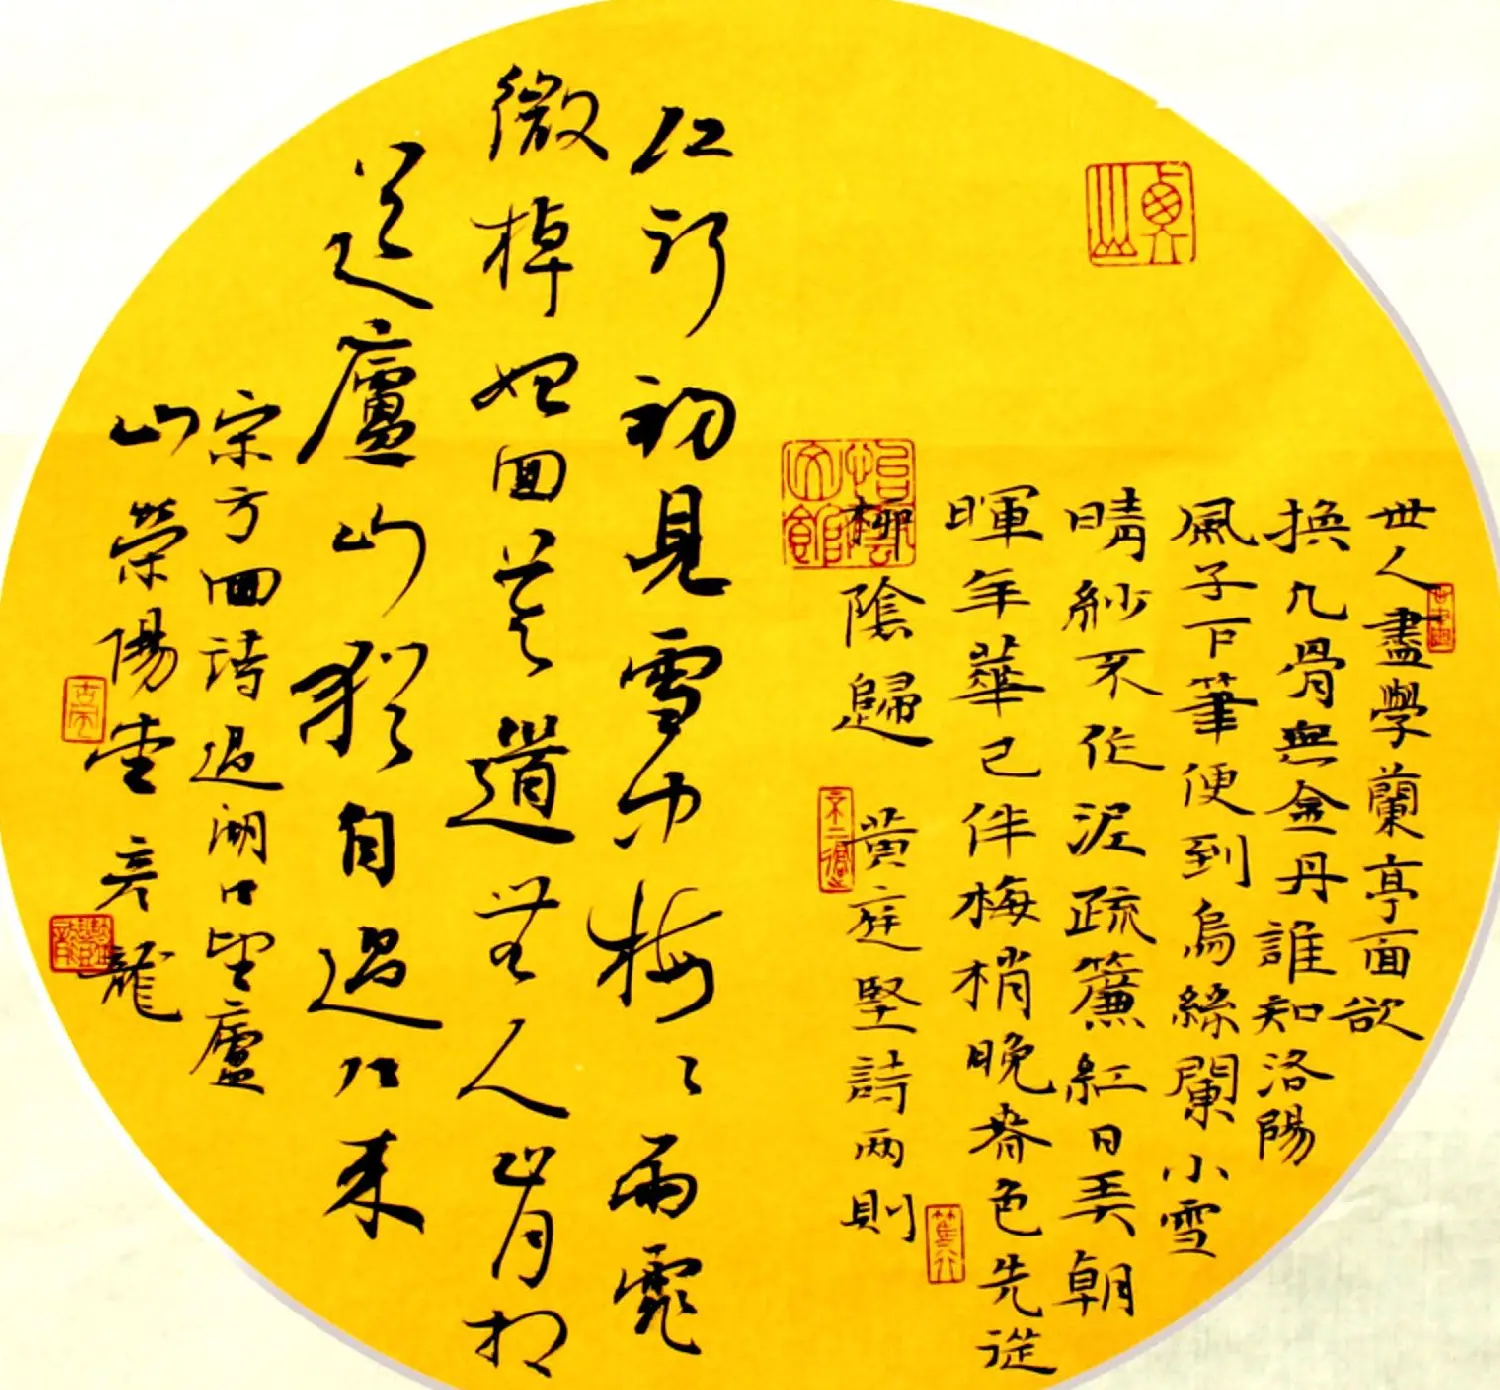 世人盡學蘭亭面欲
換凡骨無金丹誰知洛陽
風子下筆便到烏絲闌小雪
晴紗不作泥疏簾紅日弄朝
暉年華已伴梅梢晚春色先從
柳陰歸 黃庭堅詩兩則
江行初見雪中梅〻雨霏
微棹始回莫道無人肯相
送廬山猶自過江來
宋方回詩過湖口望廬
山 榮陽堂 彥龍